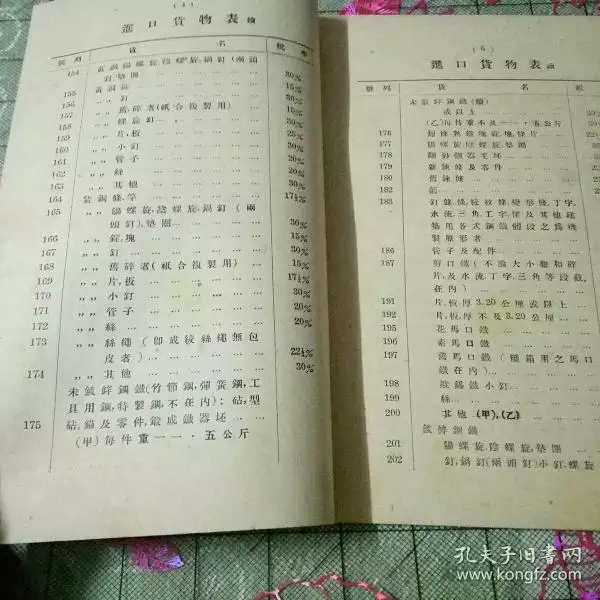 （5）
進口貨物表 續
號列 貨名 稅率
154 黃銅陽螺旋,陰螺旋,鍋釘(兩頭
釘),墊圈 30%
155 黃銅錠 15%
156 〃〃釘 30%
157 〃〃舊,碎者(祇合複製用) 15%
158 〃〃螺旋釘 30%
159 〃〃片,板 25%
160 〃〃小釘 30%
161 〃〃管子 20%
162 〃〃絲 20%
163 〃〃其他 30%
164 紫銅條,竿 17½%
165 〃〃陽螺旋,陰螺旋,鍋釘(兩
頭釘),墊圈 30%
166 〃〃錠,塊 15%
167 〃〃釘 30%
168 〃〃舊,碎者(祇合複製用) 15%
169 〃〃片,板 17½%
170 〃〃小釘 30%
171 〃〃管子 20%
172 〃〃絲 20%
173 〃〃絲繩(卽或絞絲繩無包
皮者) 22½%
174 〃〃其他 30%
未鍍鋅鋼鐵(竹節鋼,彈簧鋼,工
具用鋼,特製鋼,不在內):砧,型
175 砧,錨及零件,鍛成鐵器坯
(甲)每件重一一·五公斤
（6）
進口貨物表 續
號列 貨名 稅
未鍍鋅鋼鐵(續)
或以上
(乙)每件重不及一一·五公斤
176
177 陽螺旋,陰螺旋,墊圈
178 翻砂鐵器毛坯
179 新鍊條及零件
180 舊鍊條
182 舊
183 釘條,
水流,三角,工字條及其他建
築用各式鋼鐵體段之爲機
製原形者
186 管子及配件
187 剪口鐵(不論大小種和碎
片,及水流,丁字,三角等段截,
在內)
191 片,板厚3.20公厘或以上
192 片,板厚不及3.20公厘
195 花馬口鐵
196 素馬口鐵
197 舊馬口鐵(襯箱用之馬口
鐵在內)
198 鍍錫鐵小釘
199 絲
200 其他(甲),(乙)
鍍鋅鋼鐵
201 陽螺旋,陰螺旋,墊圈
202 釘,鍋釘(兩頭釘)小釘,螺旋
孔夫子旧书网
www.kongfz.com